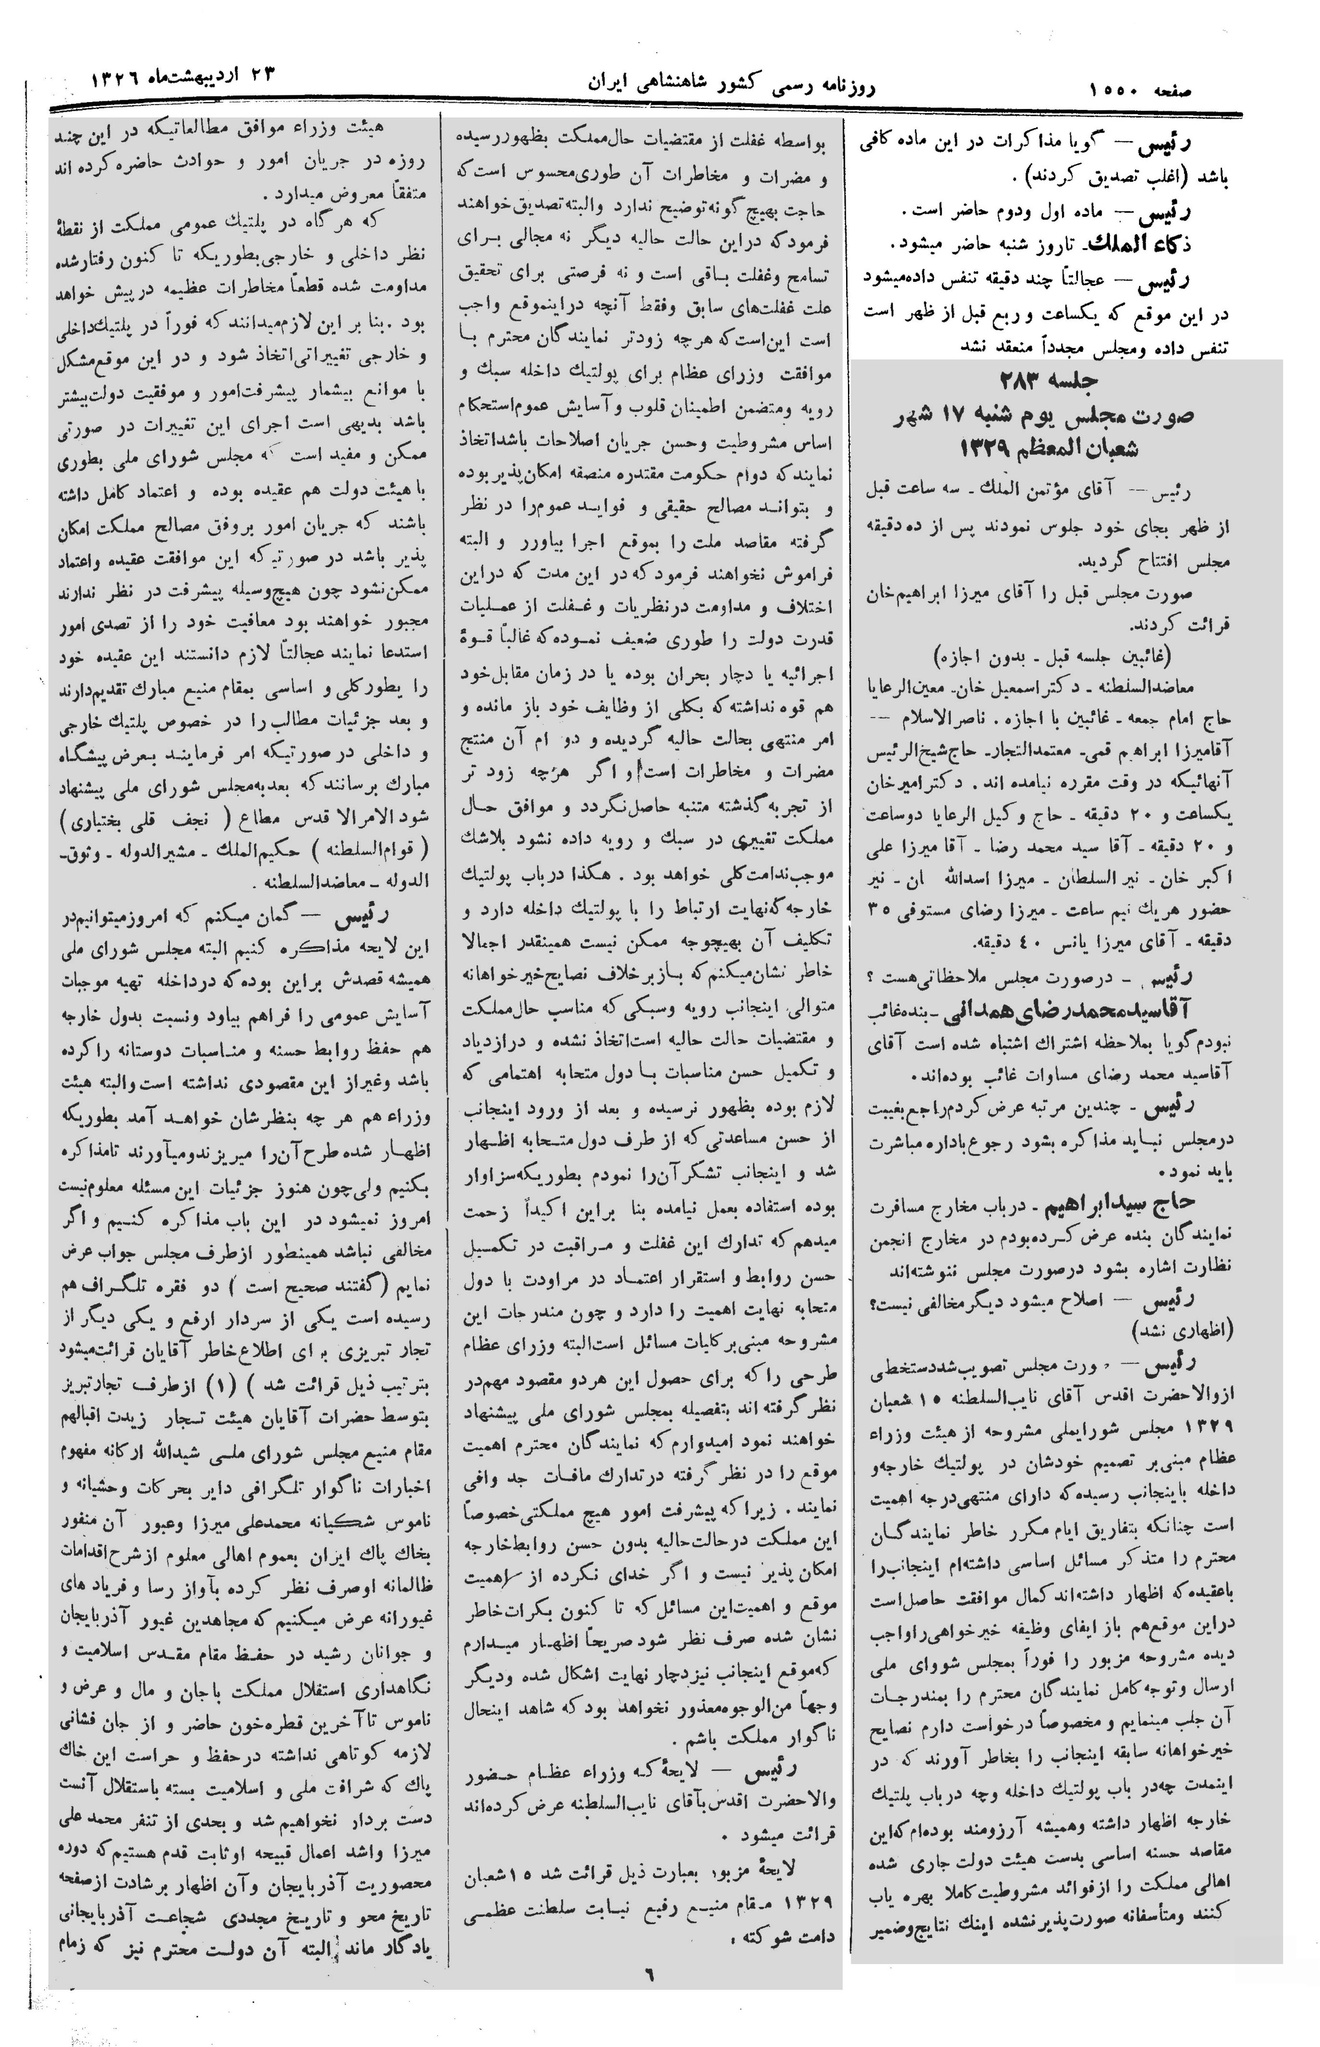 صفحه ۱۵۵۰
روزنامه رسمی کشور شاهنشاهی ایران
۲۳ اردیبهشت‌ماه ۱۳۲۶
رئیس — گویا مذاکرات در این ماده کافی
باشد (اغلب تصدیق کردند) .
رئیس — ماده اول ودوم حاضر است .
ذکاء الملك ـ تاروز شنبه حاضر میشود .
رئیس — عجالتاً چند دقیقه تنفس داده‌میشود
در این موقع که یکساعت و ربع قبل از ظهر است
تنفس داده ومجلس مجدداً منعقد نشد
جلسه ۲۸۳
صورت مجلس یوم شنبه ۱۷ شهر
شعبان المعظم ۱۳۲۹
رئیس — آقای مؤتمن الملك ـ سه ساعت قبل
از ظهر بجای خود جلوس نمودند پس از ده دقیقه
مجلس افتتاح گردید.
صورت مجلس قبل را آقای میرزا ابراهیم‌خان
قرائت کردند.
(غائبین جلسه قبل ـ بدون اجازه)
معاضدالسلطنه ـ دکتر اسمعیل خان ـ معین‌الرعایا
حاج امام جمعه ـ غائبین با اجازه . ناصرالاسلام —
آقامیرزا ابراهیم قمی ـ معتمدالتجار ـ حاج‌شیخ‌الرئیس
آنهائیکه در وقت مقرره نیامده اند . دکتر امیرخان
یکساعت و ۲۰ دقیقه ـ حاج وکیل الرعایا دوساعت
و ۲۰ دقیقه ـ آقا سید محمد رضا ـ آقا میرزا علی
اکبر خان ـ نیر السلطان ـ میرزا اسدالله ان ـ نیر
حضور هریك نیم ساعت ـ میرزا رضای مستوفی ۳۵
دقیقه ـ آقای میرزا یانس ۴۰ دقیقه.
رئیس ـ درصورت مجلس ملاحظاتی هست ؟
آقاسیدمحمدرضای همدانی ـ بنده‌غائب
نبودم گویا بملاحظه اشتراك اشتباه شده است آقای
آقاسید محمد رضای مساوات غائب بوده‌اند.
رئیس ـ چندین مرتبه عرض کردم‌راجع بغیبت
درمجلس نباید مذاکره بشود رجوع باداره مباشرت
باید نمود .
حاج سیدابراهیم ـ درباب مخارج مسافرت
نمایندگان بنده عرض کرده‌بودم در مخارج انجمن
نظارت اشاره بشود درصورت مجلس ننوشته‌اند
رئیس — اصلاح میشود دیگر مخالفی نیست؟
(اظهاری نشد)
رئیس — ورت مجلس تصویب شددستخطی
ازوالاحضرت اقدس آقای نایب‌السلطنه ۱۵ شعبان
۱۳۲۹ مجلس شورایملی مشروحه از هیئت وزراء
عظام مبنی‌بر تصمیم خودشان در پولتیك خارجه و
داخله باینجانب رسیده‌که دارای منتهی‌درجه اهمیت
است چنانکه بتفاریق ایام مکرر خاطر نمایندگان
محترم را متذکر مسائل اساسی داشته‌ام اینجانب‌را
باعقیده‌که اظهار داشته‌اند کمال موافقت حاصل‌است
دراین موقع‌هم باز ایفای وظیفه خیرخواهی‌راواجب
دیده مشروحه مزبور را فوراً بمجلس شووای ملی
ارسال وتوجه کامل نمایندگان محترم را بمندرجات
آن جلب مینمایم و مخصوصاً درخواست دارم نصایح
خیرخواهانه سابقه اینجانب را بخاطر آورند که در
اینمدت چه‌در باب پولتیك داخله وچه درباب پلتیك
خارجه اظهار داشته وهمیشه آرزومند بوده‌ام که‌این
مقاصد حسنه اساسی بدست هیئت دولت جاری شده
اهالی مملکت را ازفوائد مشروطیت کاملا بهره یاب
کنند ومتأسفانه صورت‌پذیر نشده اینك نتایج‌وضمیر
بواسطه غفلت از مقتضیات حال‌مملکت بظهور رسیده
و مضرات و مخاطرات آن طوری محسوس است که
حاجت بهیچ گونه توضیح ندارد والبته تصدیق خواهند
فرمود که دراین حالت حالیه دیگر نه مجالی برای
تسامح وغفلت باقی است و نه فرصتی برای تحقیق
علت غفلت‌های سابق وفقط آنچه دراینموقع واجب
است این‌است که هرچه زودتر نمایندگان محترم با
موافقت وزرای عظام برای پولتیك داخله سبك و
رویه ومتضمن اطمینان قلوب وآسایش عموم استحکام
اساس مشروطیت وحسن جریان اصلاحات باشداتخاذ
نمایند که دوام حکومت مقتدره منصفه امکان‌پذیر بوده
و بتواند مصالح حقیقی و فواید عموم‌را در نظر
گرفته مقاصد ملت را بموقع اجرا بیاورر و البته
فراموش نخواهند فرمود که در این مدت که دراین
اختلاف و مداومت در نظریات و غفلت از عملیات
قدرت دولت را طوری ضعیف نموده‌که غالباً قوة
اجرائیه یا دچار بحران بوده یا در زمان مقابل‌خود
هم قوه نداشته‌که بکلی از وظایف خود باز مانده و
امر منتهی بحالت حالیه گردیده و دوام آن منتج
مضرات و مخاطرات است و اگر هرچه زود تر
از تجربه گذشته متنبه حاصل نگردد و موافق حال
مملکت تغییری در سبك و رویه داده نشود بلاشك
موجب ندامت کلی خواهد بود . هکذا درباب پولتیك
خارجه که نهایت ارتباط را با پولتیك داخله دارد و
تکلیف آن بهیچوجه ممکن نیست همینقدر اجمالا
خاطر نشان میکنم که باز برخلاف نصایح خیرخواهانه
متوالی اینجانب رویه وسبکی که مناسب حال‌مملکت
و مقتضیات حالت حالیه است‌اتخاذ نشده و درازدیاد
و تکمیل حسن مناسبات با دول متحابه اهتمامی که
لازم بوده بظهور نرسیده و بعد از ورود اینجانب
از حسن مساعدتی که از طرف دول متحابه اظهار
شد و اینجانب تشکر آن‌را نمودم بطوریکه سزاوار
بوده استفاده بعمل نیامده بنا براین اکیداً زحمت
میدهم که تدارك این غفلت و مراقبت در تکمیل
حسن روابط و استقرار اعتماد در مراودت با دول
متحابه نهایت اهمیت را دارد و چون مندرجات این
مشروحه مبنی برکایات مسائل است‌البته وزرای عظام
طرحی راکه برای حصول این هردو مقصود مهم‌در
نظر گرفته اند بتفصیله بمجلس شورای ملی پیشنهاد
خواهند نمود امیدوارم که نمایندگان محترم اهمیت
موقع را در نظر گرفته درتدارك مافات جد وافی
نمایند . زیرا که پیشرفت امور هیچ مملکتی خصوصاً
این مملکت درحالت‌حالیه بدون حسن روابط‌خارجه
امکان پذیر نیست و اگر خدای نکرده از اهمیت
موقع و اهمیت‌این مسائل که تا کنون بکرات‌خاطر
نشان شده صرف نظر شود صریحاً اظهار میدارم
که موقع اینجانب نیز دچار نهایت اشکال شده ودیگر
وجهاً من‌الوجوه معذور نخواهد بود که شاهد اینحال
ناگوار مملکت باشم .
رئیس — لایحهٔ که وزراء عظام حضور
والاحضرت اقدس بآقای نایب‌السلطنه عرض کرده‌اند
قرائت میشود .
لایحهٔ مزبور بعبارت ذیل قرائت شد ۱۵ شعبان
۱۳۲۹ مقام منیع رفیع نیابت سلطنت عظمی
دامت شوکته :
هیئت وزراء موافق مطالعاتیکه در این چند
روزه در جریان امور و حوادث حاضره کرده اند
متفقاً معروض میدارد .
که هر گاه در پلتیك عمومی مملکت از نقطهٔ
نظر داخلی و خارجی بطوریکه تا کنون رفتارشده
مداومت شده قطعاً مخاطرات عظیمه درپیش خواهد
بود . بنا بر این لازم میدانند که فوراً در پلتیك‌داخلی
و خارجی تغییراتی اتخاذ شود و در این موقع‌مشکل
با موانع بیشمار پیشرفت‌امور و موفقیت دولت‌بیشتر
باشد بدیهی است اجرای این تغییرات در صورتی
ممکن و مفید است که مجلس شورای ملی بطوری
با هیئت دولت هم عقیده بوده و اعتماد کامل داشته
باشند که جریان امور بروفق مصالح مملکت امکان
پذیر باشد در صورتیکه این موافقت عقیده واعتماد
ممکن نشود چون هیچ وسیله پیشرفت در نظر ندارند
مجبور خواهند بود معافیت خود را از تصدی امور
استدعا نمایند عجالتاً لازم دانستند این عقیده خود
را بطور کلی و اساسی بمقام منیع مبارك تقدیم‌دارند
و بعد جزئیات مطالب را در خصوص پلتیك خارجی
و داخلی در صورتیکه امر فرمایند بعرض پیشگاه
مبارك برسانند که بعد به مجلس شورای ملی پیشنهاد
شود الامر الاقدس مطاع ( نجف قلی بختیاری )
( قوام السلطنه ) حکیم‌الملك ـ مشیرالدوله ـ وثوق‌ـ
الدوله ـ معاضدالسلطنه .
رئیس — گمان میکنم که امروز میتوانیم‌در
این لایحه مذاکره کنیم البته مجلس شورای ملی
همیشه قصدش براین بوده‌که درداخله تهیه موجبات
آسایش عمومی را فراهم بیاود ونسبت بدول خارجه
هم حفظ روابط حسنه و مناسبات دوستانه را کرده
باشد وغیراز این مقصودی نداشته است والبته هیئت
وزراء هم هر چه بنظرشان خواهد آمد بطوریکه
اظهار شده طرح آن‌را میریزند و میآورند تامذاکره
بکنیم ولی چون هنوز جزئیات این مسئله معلوم نیست
امروز نمیشود در این باب مذاکره کنیم و اگر
مخالفی نباشد همینطور ازطرف مجلس جواب عرض
نمایم (گفتند صحیح است ) دو فقره تلگراف هم
رسیده است یکی از سردار ارفع و یکی دیگر از
تجار تبریزی برای اطلاع خاطر آقایان قرائت میشود
بترتیب ذیل قرائت شد ) (۱) ازطرف تجار تبریز
بتوسط حضرات آقایان هیئت تجار زیدت اقبالهم
مقام منیع مجلس شورای ملی شیدالله ارکانه مفهوم
اخبارات ناگوار تلگرافی دایر بحرکات وحشیانه و
ناموس شکیانه محمدعلی میرزا وعبور آن منفور
بخاك پاك ایران بعموم اهالی معلوم از شرح اقدامات
ظالمانه اوصرف نظر کرده بآواز رسا و فریاد های
غیورانه عرض میکنیم که مجاهدین غیور آذربایجان
و جوانان رشید در حفظ مقام مقدس اسلامیت و
نگاهداری استقلال مملکت باجان و مال و عرض و
ناموس تاآخرین قطره‌خون حاضر و از جان فشانی
لازمه کوتاهی نداشته درحفظ و حراست این خاك
پاك که شرافت ملی و اسلامیت بسته باستقلال آنست
دست بردار نخواهیم شد و بحدی از تنفر محمد علی
میرزا واشد اعمال قبیحه او ثابت قدم هستیم که دوره
محصوریت آذربایجان وآن اظهار برشادت ازصفحه
تاریخ محو و تاریخ مجددی شجاعت آذربایجانی
یادگار ماند البته آن دولت محترم نیز که زمام
۶